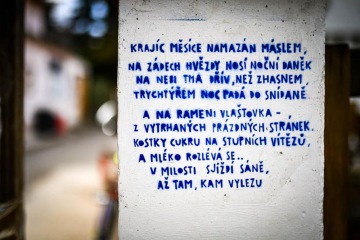 KRAJÍC MĚSÍCE NAMAZÁN MÁSLEM,
NA ZÁDECH HVĚZDY NOSÍ NOČNÍ DANĚK
NA NEBI TMA DŘÍV, NEŽ ZHASNEM,
TRYCHTÝŘEM NOC PADÁ DO SNÍDANĚ
A NA RAMENI VLAŠŤOVKA –
Z VYTRHANÝCH PRÁZDNÝCH STRÁNEK.
KOSTKY CUKRU NA STUPNÍCH VÍTĚZŮ,
A MLÉKO ROZLÉVÁ SE..
V MILOSTI SJÍŽDÍ SÁNĚ,
AŽ TAM, KAM VYLEZU